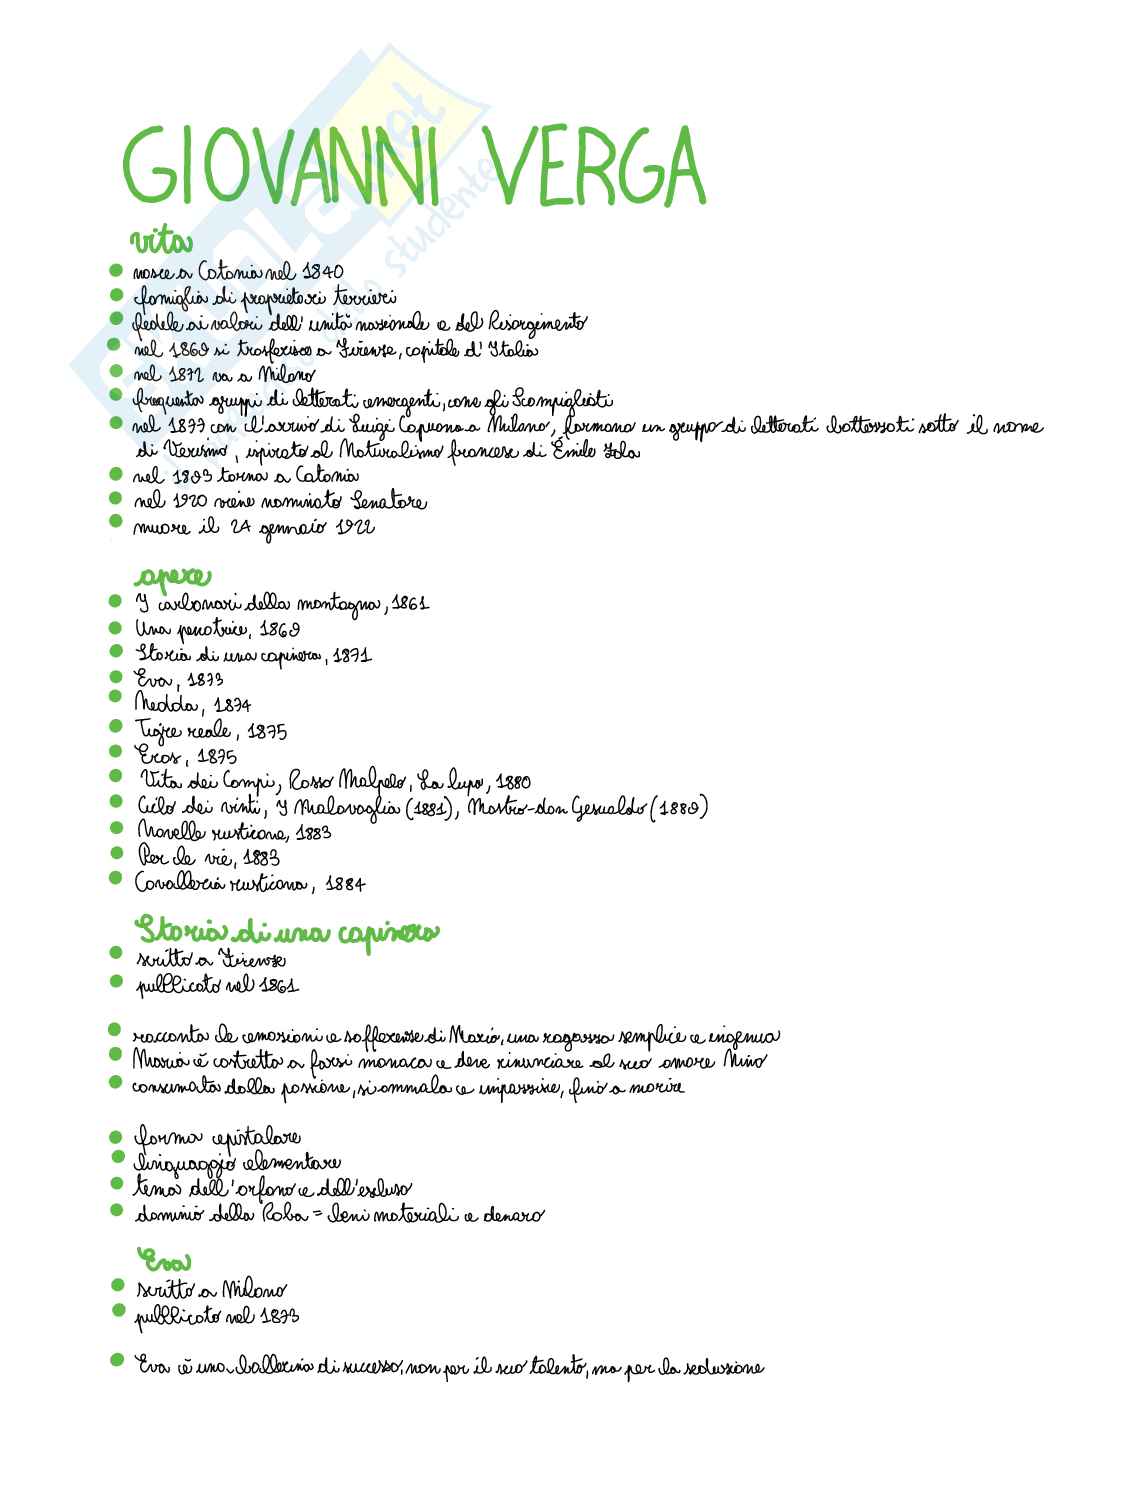 GIOVANNI VERGA
vita
nasce a Catania nel 1840
famiglia di proprietari terrieri
fedele ai valori dell'unità nazionale e del Risorgimento
nel 1869 si trasferisce a Firenze, capitale d'Italia
nel 1872 va a Milano
frequenta gruppi di letterati emergenti, come gli Scampigliati
nel 1877 con l'arrivo di Luigi Capuana a Milano, formano un gruppo di letterati battezzati sotto il nome
di Verismo, ispirato al Naturalismo francese di Émile Zola
nel 1893 torna a Catania
nel 1920 viene nominato Senatore
muore il 24 gennaio 1922
opere
I carbonari della montagna, 1861
Una peccatrice, 1869
Storia di una capinera, 1871
Eva, 1873
Nedda, 1874
Tigre reale, 1875
Eros, 1875
Vita dei Campi, Rosso Malpelo, La lupa, 1880
Ciclo dei vinti, I Malavoglia (1881), Mastro-don Gesualdo (1889)
Novelle rusticane, 1883
Per le vie, 1883
Cavalleria rusticana, 1884
Storia di una capinera
scritto a Firenze
pubblicato nel 1861
racconta le emozioni e sofferenze di Maria, una ragazza semplice e ingenua
Maria è costretta a farsi monaca e deve rinunciare al suo amore Nino
consumata dalla passione, si ammala e impazzisce, fino a morire
forma epistolare
linguaggio elementare
tema dell'orfano e dell'escluso
dominio della Roba = beni materiali e denaro
Eva
scritto a Milano
pubblicato nel 1873
Eva è una ballerina di successo, non per il suo talento, ma per la seduzione